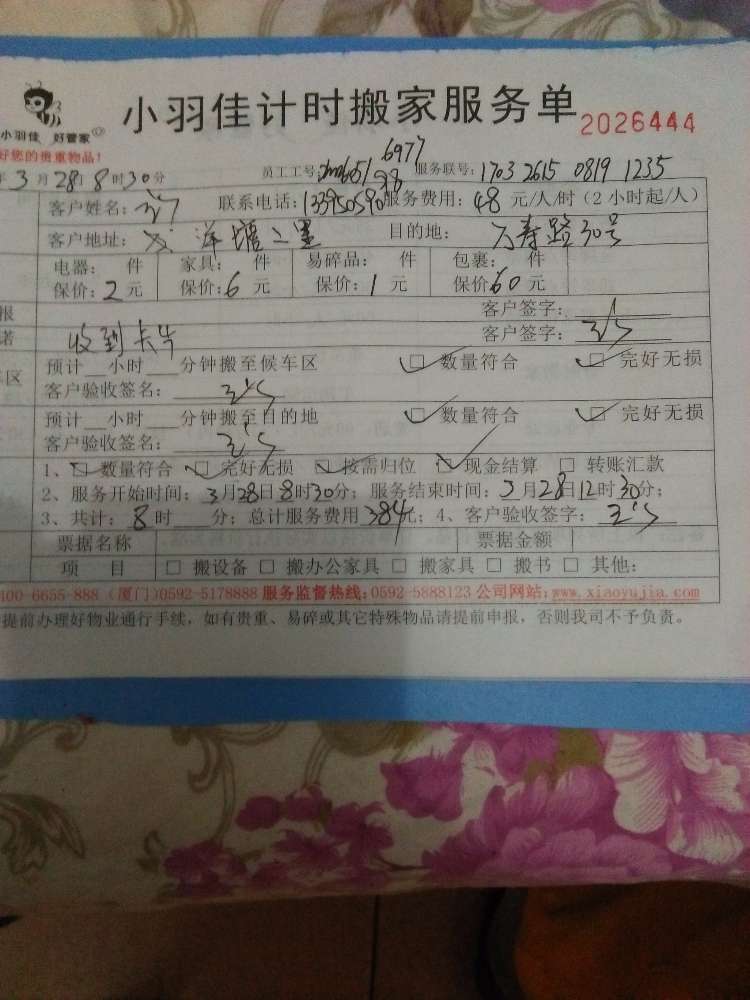 小羽佳计时搬家服务单 2026444
小羽佳 好管家
好您的贵重物品!
年3月28日8时30分 员工工号: 6977 服务联号: 1703 2615 0819 1235
客户姓名: 联系电话: 服务费用: 48 元/人/时 (2小时起/人)
客户地址: 洋塘二里 目的地: 万寿路30号
电器: 件 家具: 件 易碎品: 件 包裹: 件
保价: 2 元 保价: 6 元 保价: 1 元 保价 60 元
报 客户签字:
诺 收到卡片 客户签字:
车区 预计__小时___分钟搬至候车区 ☑ 数量符合 ☑ 完好无损
客户验收签名:
预计__小时___分钟搬至目的地 ☑ 数量符合 ☑ 完好无损
客户验收签名:
1、☑ 数量符合 ☑ 完好无损 ☑ 按需归位 ☑ 现金结算 □ 转账汇款
2、服务开始时间: 3月28日8时30分; 服务结束时间: 3月28日12时30分;
3、共计: 8 时___分; 总计服务费用 384元; 4、客户验收签字:
票据名称 票据金额
项 目 □ 搬设备 □ 搬办公家具 □ 搬家具 □ 搬书 □ 其他:
400-6655-888 (厦门)0592-5178888 服务监督热线:0592-5888123 公司网站:www.xiaoyujia.com
提前办理好物业通行手续, 如有贵重、易碎或其它特殊物品请提前申报, 否则我司不予负责。